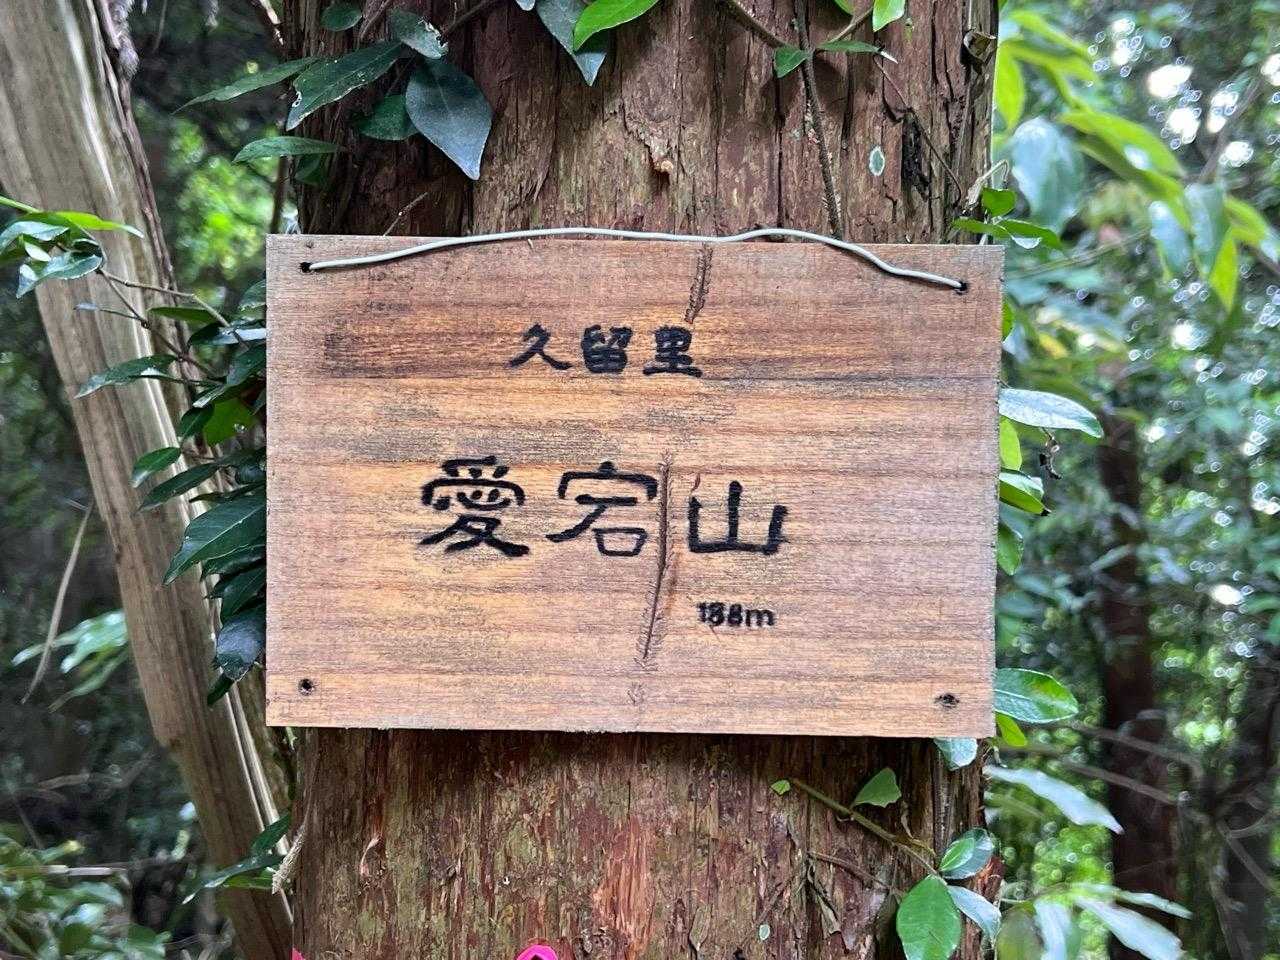 久留里
愛宕山
188m